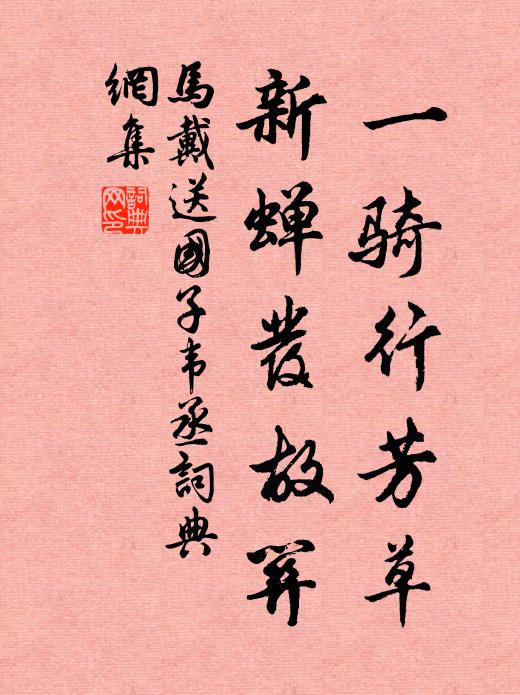 一骑行芳草
新蝉發故関
馬戴送國子韦丞詞典
網集
詞典网印